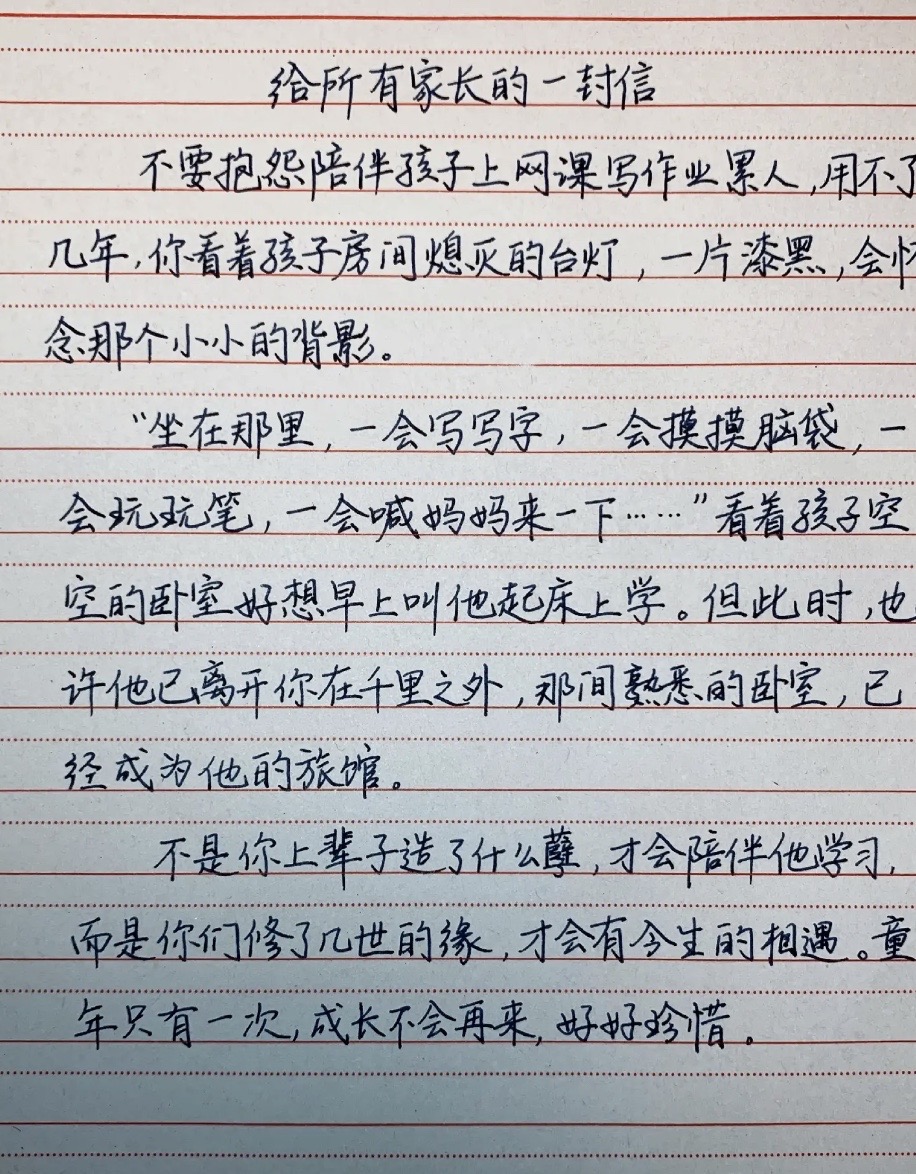 给所有家长的一封信
不要抱怨陪伴孩子上网课写作业累人,用不了
几年,你看着孩子房间熄灭的台灯,一片漆黑,会怀
念那个小小的背影。
“坐在那里,一会写写字,一会摸摸脑袋,一
会玩玩笔,一会喊妈妈来一下……”看着孩子空
空的卧室好想早上叫他起床上学。但此时,也
许他已离开你在千里之外,那间熟悉的卧室,已
经成为他的旅馆。
不是你上辈子造了什么孽,才会陪伴他学习,
而是你们修了几世的缘,才会有今生的相遇。童
年只有一次,成长不会再来,好好珍惜。